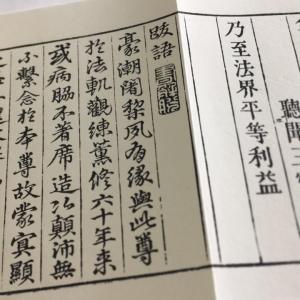 聽聞
乃至法界平等利益
跋語
豪潮闍黎夙有緣與此尊
於法軌觀練薰修六十年来
或病脇不著席造次顛沛無
不繫念於本尊故蒙冥顯